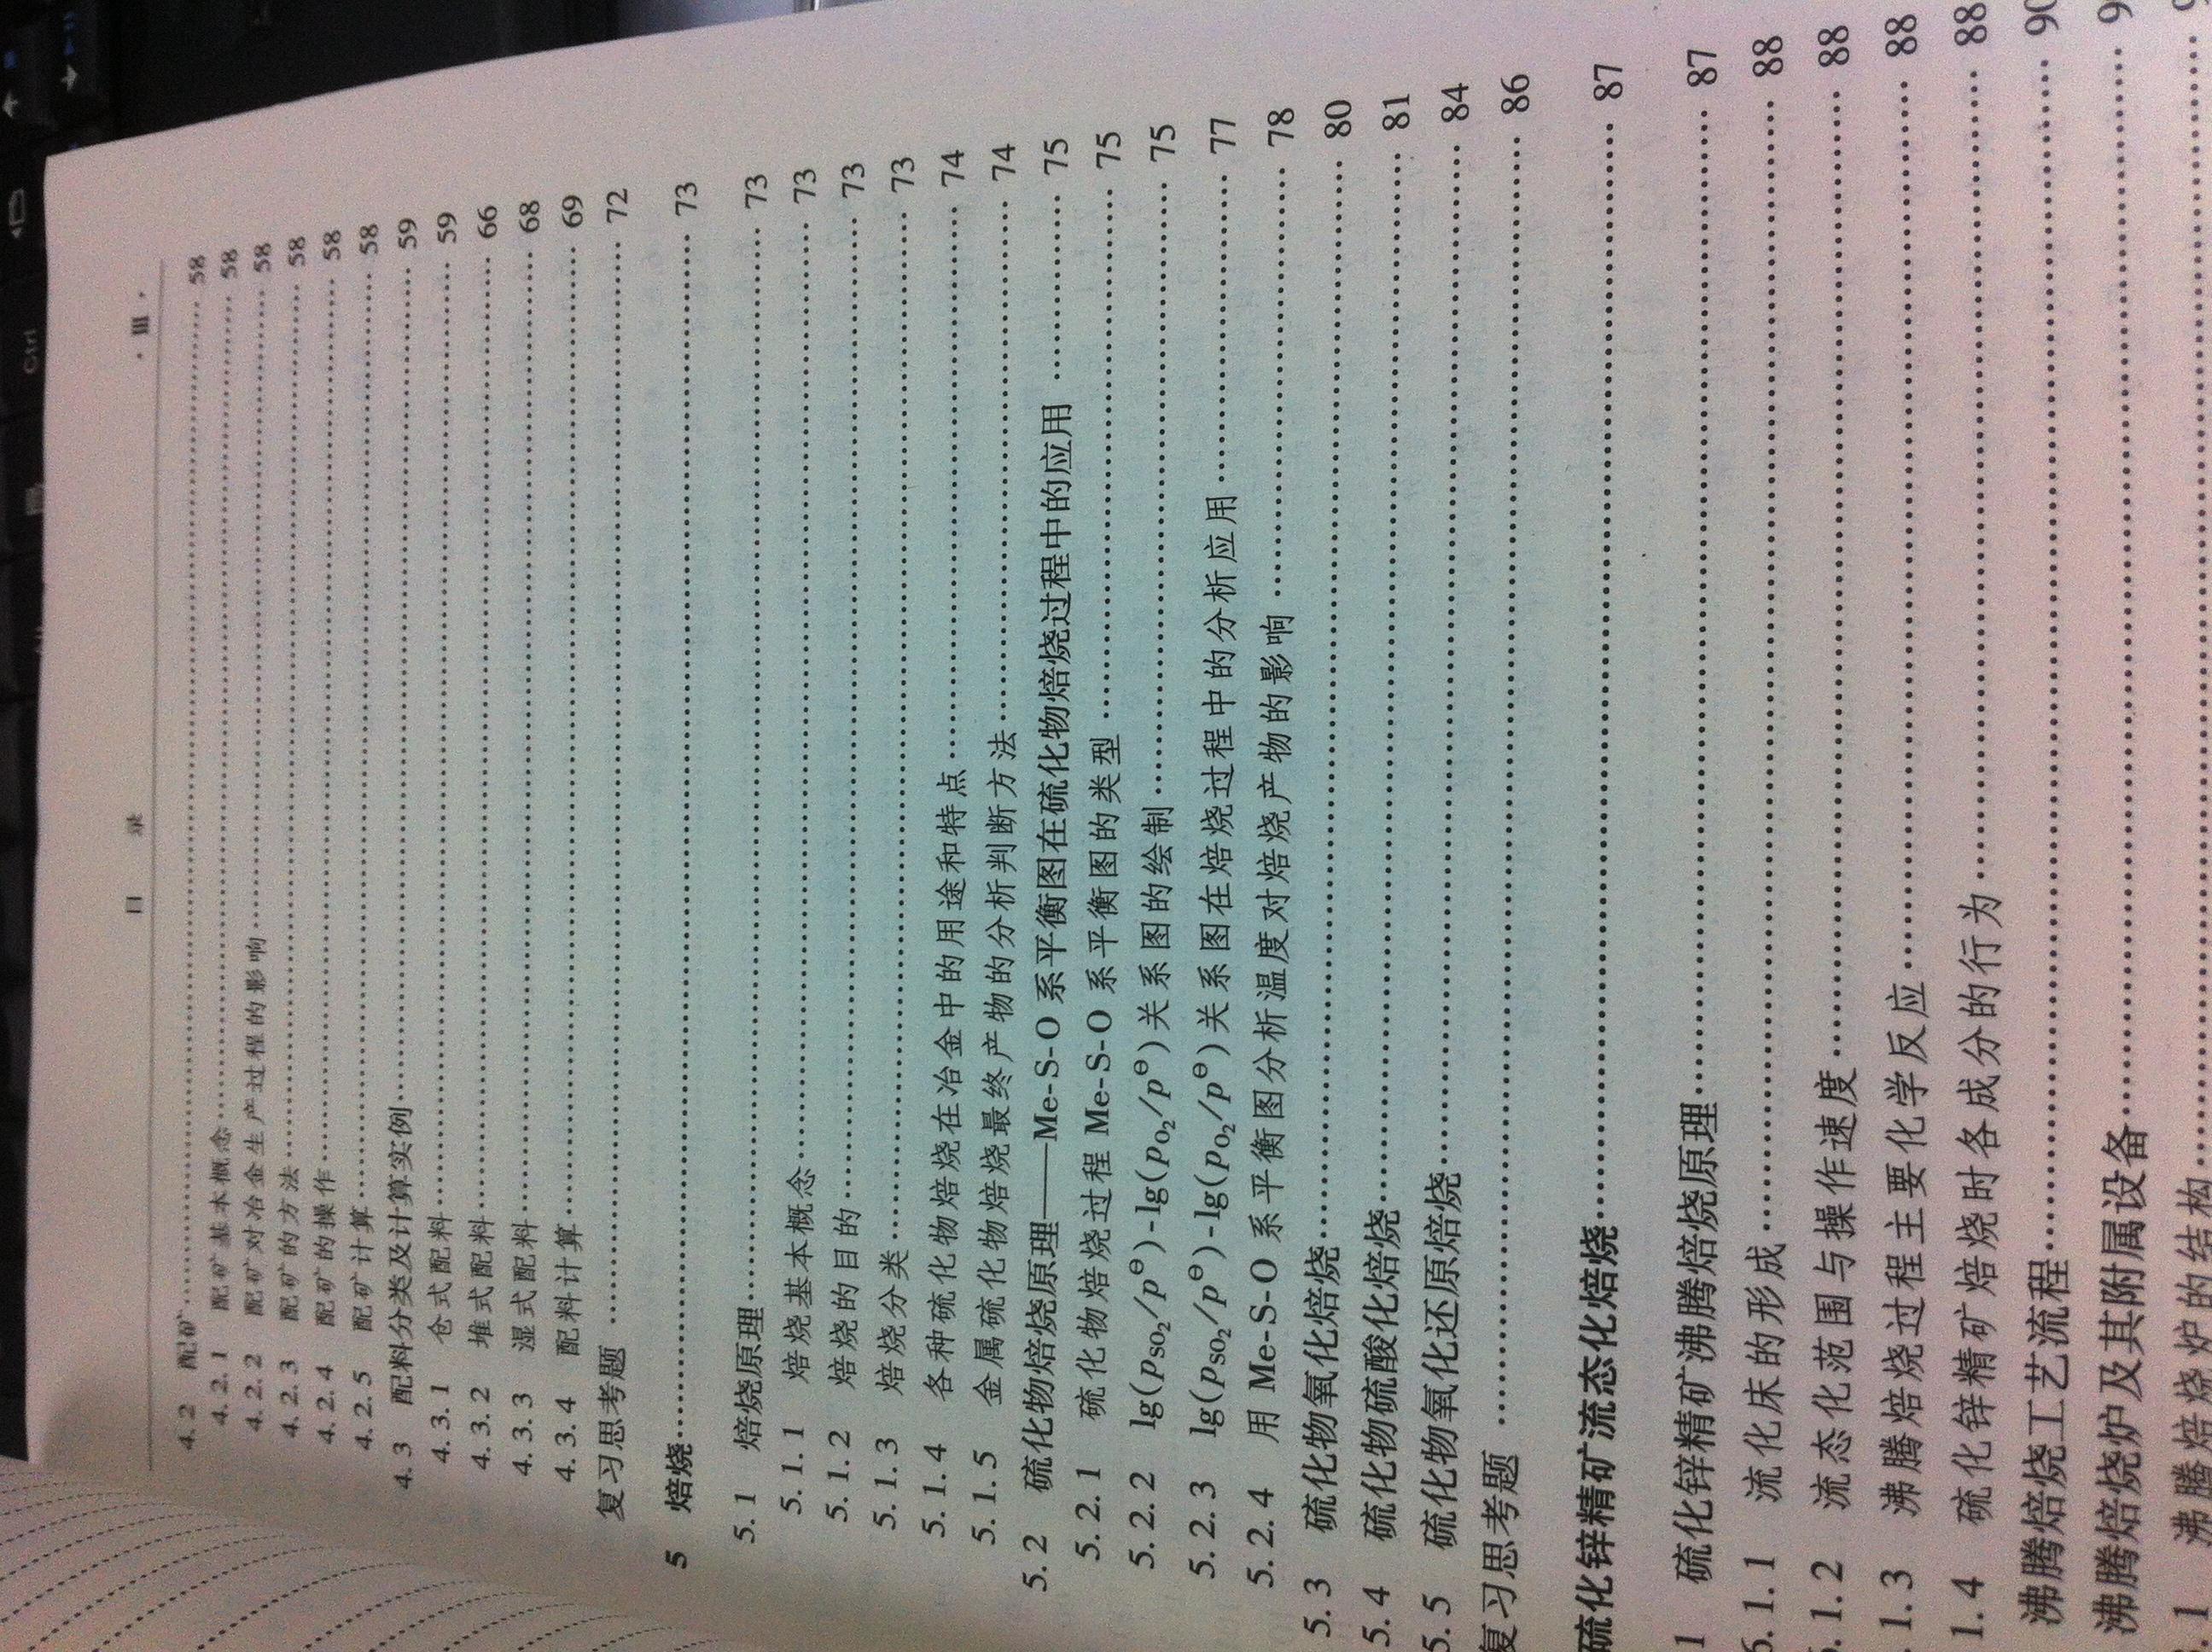 Ctrl
目 录 · Ⅲ ·
4.2 配矿 58
4.2.1 配矿基本概念 58
4.2.2 配矿对冶金生产过程的影响 58
4.2.3 配矿的方法 58
4.2.4 配矿的操作 58
4.2.5 配矿计算 58
4.3 配料分类及计算实例 59
4.3.1 仓式配料 59
4.3.2 堆式配料 66
4.3.3 湿式配料 68
4.3.4 配料计算 69
复习思考题 72
5 焙烧 73
5.1 焙烧原理 73
5.1.1 焙烧基本概念 73
5.1.2 焙烧的目的 73
5.1.3 焙烧分类 73
5.1.4 各种硫化物焙烧在冶金中的用途和特点 74
5.1.5 金属硫化物焙烧最终产物的分析判断方法 74
5.2 硫化物焙烧原理——Me-S-O 系平衡图在硫化物焙烧过程中的应用 75
5.2.1 硫化物焙烧过程 Me-S-O 系平衡图的类型 75
5.2.2 lg(p_SO₂/p^⊖)-lg(p_O₂/p^⊖)关系图的绘制 75
5.2.3 lg(p_SO₂/p^⊖)-lg(p_O₂/p^⊖)关系图在焙烧过程中的分析应用 77
5.2.4 用 Me-S-O 系平衡图分析温度对焙烧产物的影响 78
5.3 硫化物氧化焙烧 80
5.4 硫化物硫酸化焙烧 81
5.5 硫化物氧化还原焙烧 84
复习思考题 86
硫化锌精矿流态化焙烧 87
1 硫化锌精矿沸腾焙烧原理 87
6.1.1 流化床的形成 88
.1.2 流态化范围与操作速度 88
.1.3 沸腾焙烧过程主要化学反应 88
1.4 硫化锌精矿焙烧时各成分的行为 88
沸腾焙烧工艺流程 90
沸腾焙烧炉及其附属设备 9
.1 沸腾焙烧炉的结构